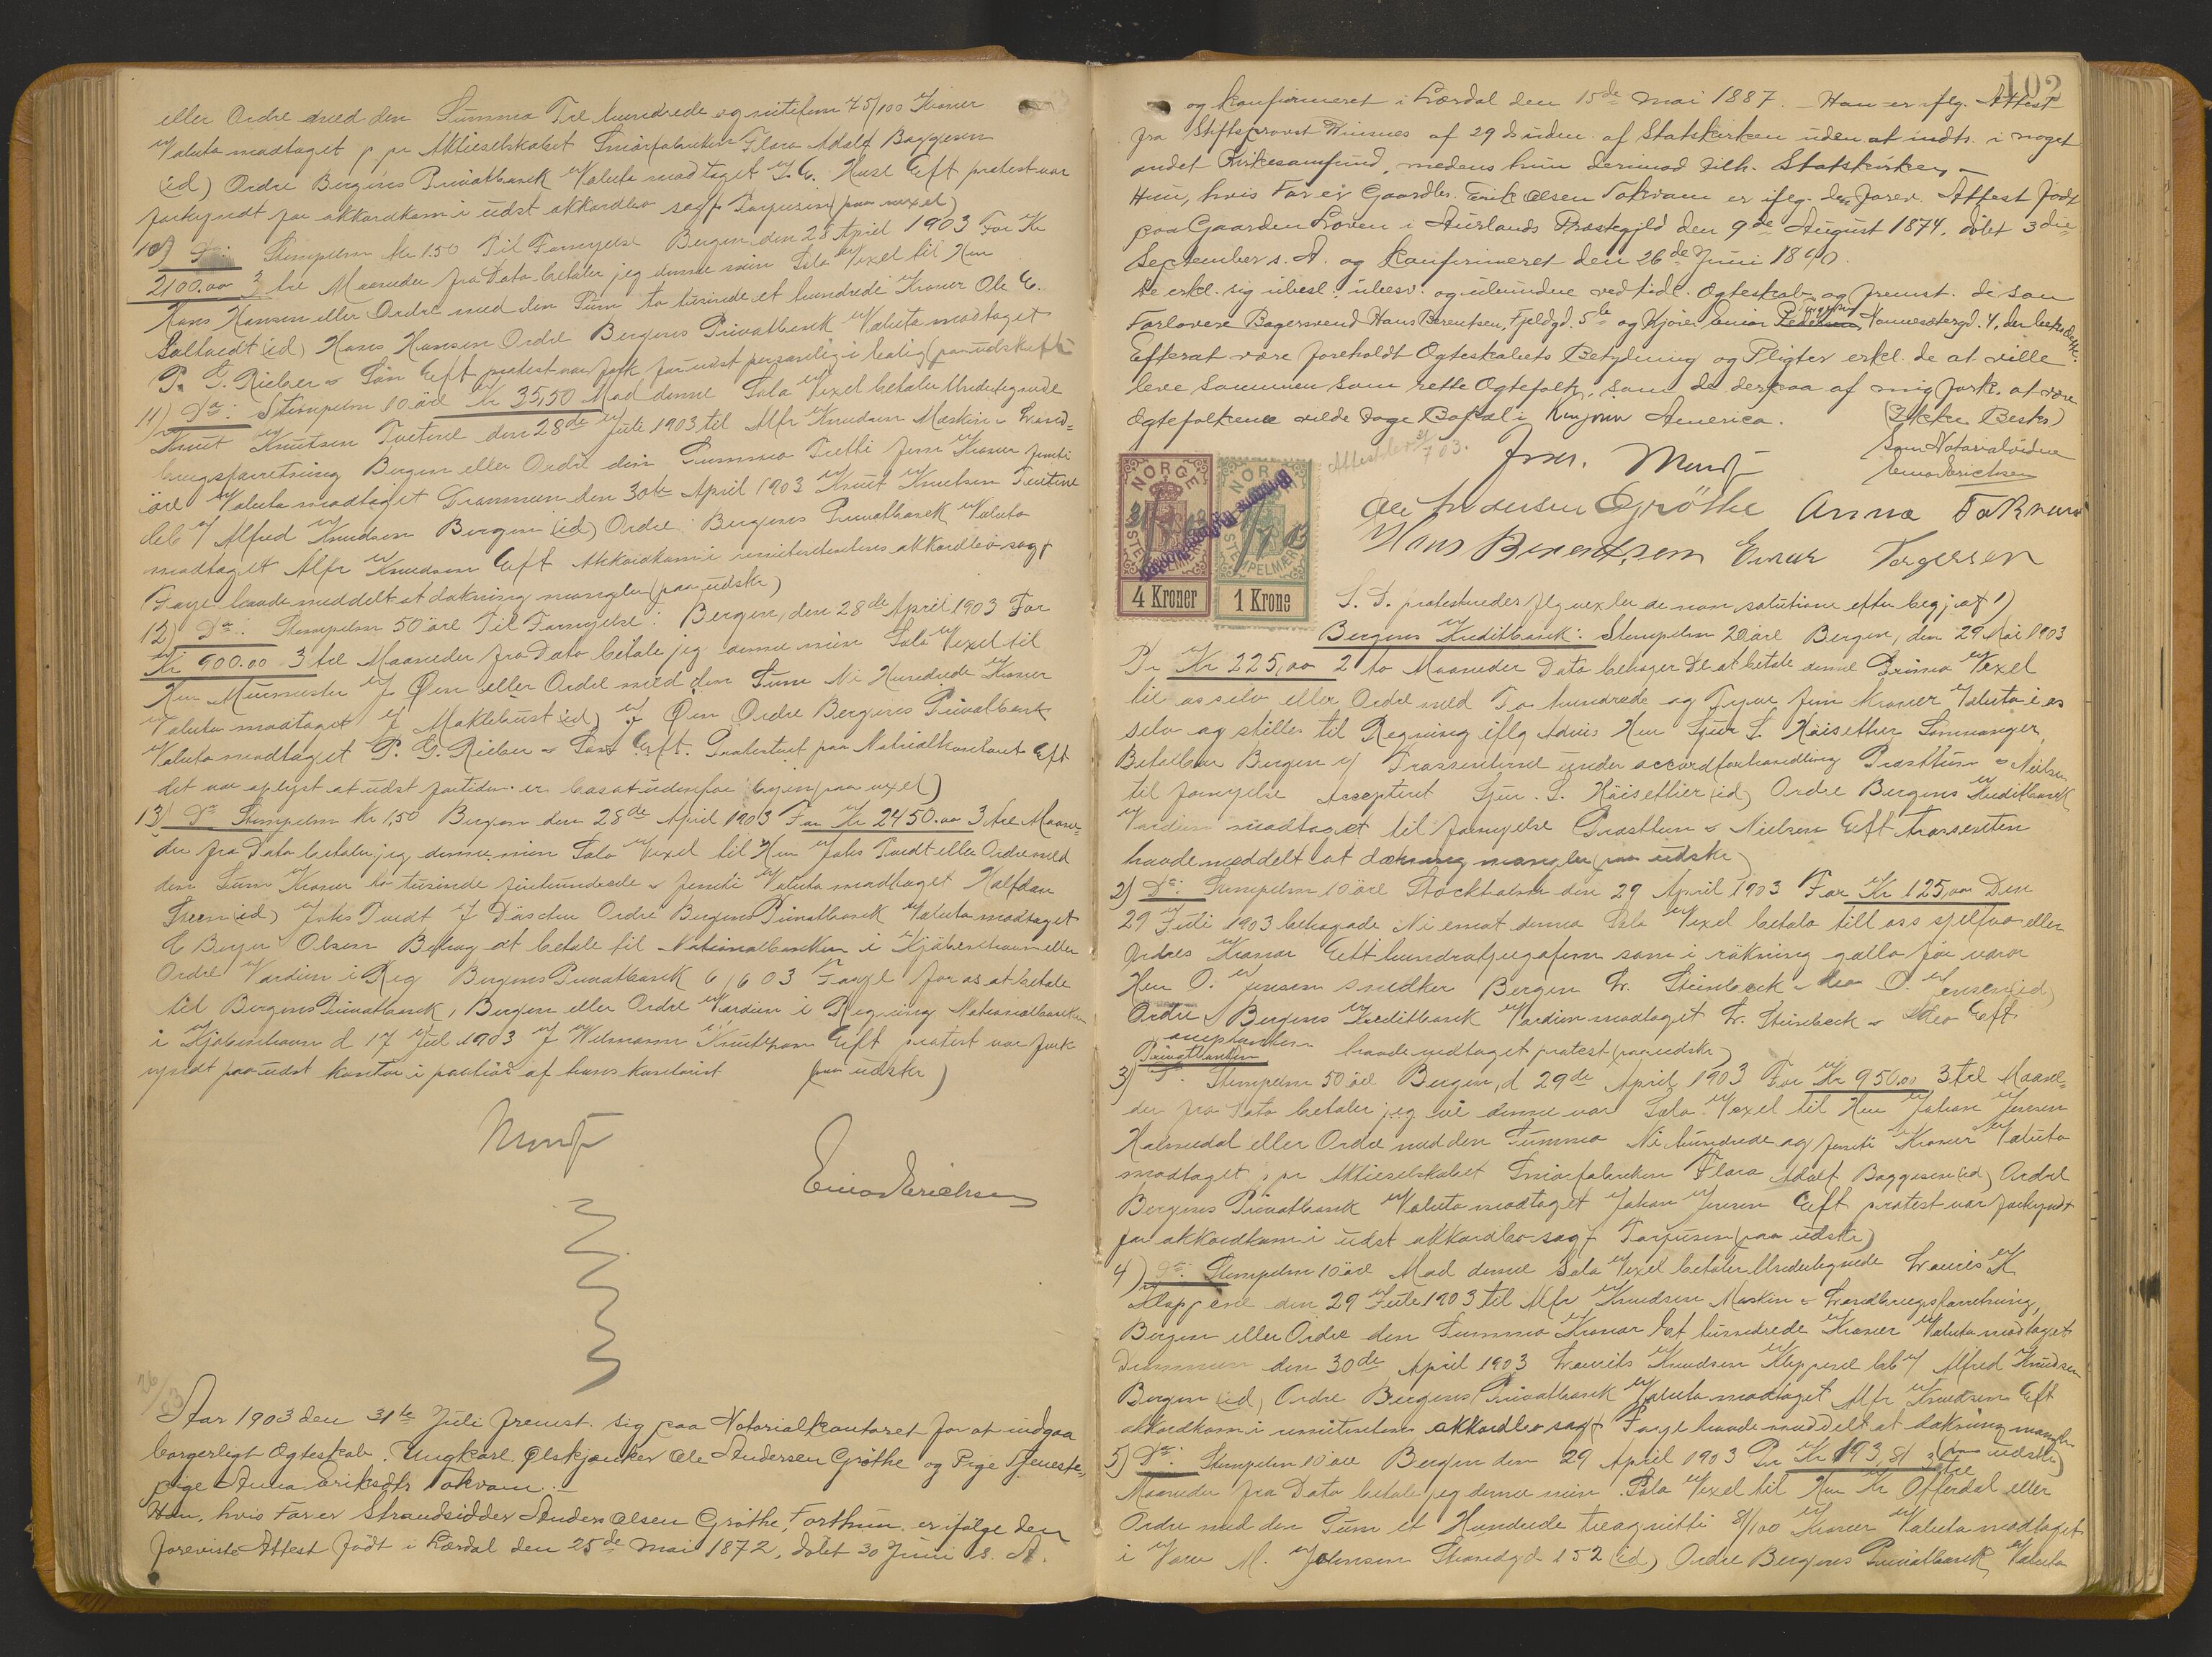 eller Ordre med den Summa Tre hundrede og nitifem 75/100 Kroner
Valuta modtaget p. pr Aktieselskabet Smörfabriken Flora Adolf Baggesen
(id) Ordre Bergens Privatbank Valuta modtaget J. C. Huse Eft protest var
forkyndt for akkordkom i udst akkordbo sagf Torjusen (paa vexel)
10) Do: Stempelm Kr 1.50 Til Fornyelse Bergen den 28 April 1903 For Kr
2100.00 3 tre Maaneder fra Dato betaler jeg denne min Sola Vexel til Herr
Hans Hansen eller Ordre med den Sum to tusinde et hundrede Kroner Ole C.
(id) Hans Hansen Ordre Bergens Privatbank Valuta modtaget
P. G. Rieber & Søn Eft protest var fork for udst personlig i bolig (paa udskrift)
11) Da: Stempelm 10 öre Kr 35,50 Mod denne Sola Vexel betaler Undertegnede
Knut Knutsen Tveterne den 28de Juli 1903 til Alfr Knudsen Maskin & Land-
brugsforretning Bergen eller Ordre den Summa Tretti fem Kroner femti
öre Valuta modtaget Drammen den 30te April 1903 Knut Knutsen
Alfred Knudsen Bergen (id) Ordre Bergens Privatbank Valuta
modtaget Alfr Knudsen Eft Akkordkom i remittentens akkordbo sagf
Faye havde meddelt at dækning mangler (paa udskr)
12) Da: Stempelm 50 öre Til Fornyelse: Bergen, den 28de April 1903 For
Kr 900.00 3 tre Maaneder fra Dato betaler jeg denne min Sola Vexel til
Herr Murmester J Øen eller Ordre med den Sum Ni Hundrede Kroner
Valuta modtaget J Maklebust (id) J Øen Ordre Bergens Privatbank
Valuta modtaget P. G. Rieber & Søn Eft. Protesteret paa Notarialkontoret Eft
det var oplyst at udst fortiden er bosat udenfor byen (paa vexel)
13) Da Stempelm Kr 1,50 Bergen den 28de April 1903 For Kr 2450.00 3 tre Maane-
der fra Dato betaler jeg denne min Sola Vexel til Herr Johs Tvedt eller Ordre med
den Sum Kroner to tusinde firehundrede & femti Valuta modtaget Halfdan
(id) Johs Tvedt J Däscher Ordre Bergens Privatbank Valuta modtaget
C Berger Olsen Behag at betale til Nationalbanken i Kjøbenhavn eller
Ordre Værdien i Reg Bergens Privatbank 6/6 03 Faye for os at betale
til Bergens Privatbank, Bergen eller Ordre Værdien i Regning Nationalbanken
i Kjøbenhavn d 17 Juli 1903 J Wilmann Knuthson Eft protest var fork
yndt paa udst kontor i paahør af hans kontorist (paa udskr)
Munf
Einar Erichsen
26/03
Aar 1903 den 31te Juli fremst. sig paa Notarialkontoret for at indgaa
borgerligt Ogteskab. Ungkarl Ølskjænker Ole Andersen Gröthe og Pige Tjeneste-
pige Anna Eriksdtr Tokvam. -
Han, hvis Far er Strandsidder Anders Olsen Gröthe, Forthun er ifölge den
foreviste Attest födt i Lærdal den 25de Mai 1872, döbt 30 Juni s. A.
102
og konfirmeret i Lærdal den 15de Mai 1887. - Han er iflg. Attest
fra Stiftsprovst Winsnes af 29 ds uden. af Statskirken uden at indtr. i noget
andet Kirkesamfund, medens hun derimod tilh. Statskirken. -
Hun, hvis Far er Gaardbr. Erik Olsen Tokvam er iflg. den forev. Attest födt
paa Gaarden Loven i Aurlands Præstegjeld den 9de August 1874, döbt 3die
September s. A. og konfirmeret den 26de Juni 1890.
De erkl. sig ubesl., ubesv. og uhindre ved tidl. Ogteskab, og fremst. de som
Forlovere Bagersvend Hans Berentsen, Fjeldgd. 5b og Kjører Einar Pedersen Torgersen, Nonnesætergd. 4, der
Efterat være foreholdt Ogteskabets Betydning og Pligter erkl. de at ville
leve sammen som rette Ogtefolk, som de derpaa af mig fork. at være
Ogtefolkene vilde tage Bopæl i Kenyon America. (Ikke Besks)
Attest blev 31/7 03.
Munf
Som Notarialvidne
Einar Erichsen
Ole Andersen Gröthe Anna Tokvam
Hans Berentsen Einar Torgersen
NORGE
STEMPELMÆRKE
4 Kroner
NORGE
STEMPELMÆRKE
1 Krone
S. D. protesteredes flg vexler de non solutione efter begj af 1)
Bergens Kreditbank: Stempelm 20 öre Bergen, den 29 Mai 1903
Pr Kr 225,00 2 to Maaneder Dato behager De at betale denne Prima Vexel
til os selv eller Ordre med To hundrede og Tyve fem Kroner Valuta i os
selv og stilles til Regning iflg Advis Herr Sjur S. Höisether Samnanger,
Betalbar Bergen Trassenterne under accordforhandling Præsttun & Nielsen
til fornyelse Accepteret Sjur. S. Höisether (id) Ordre Bergens Kreditbank
Værdien modtaget til fornyelse Præsttun & Nielsen Eft trassenten
havde meddelt at dækning mangler (paa udskr)
2) Da: Stempelm 10 öre Stockholm den 29 April 1903 For Kr 125,00 Den
29 Juli 1903 behagade Ni emot denna Sola Vexel betala till oss sjelfva eller
Ordres Kronor Ett hundratjugofem som i räkning gälla för varor
Herr O. Jensen snedker Bergen Dr. Steinbock & Neo O. Jensen (id)
Ordre Bergens Kreditbank Værdien modtaget Dr. Steinbock & Neo Eft
acceptanten havde vedtaget protest (paa udskr)
3) Privatbanken Stempelm 50 öre Bergen, d 29de April 1903 For Kr 950.00 3 tre Maane-
der fra Dato betaler jeg vi denne vor Sola Vexel til Herr Johan Jensen
Holmedal eller Ordre med den Summa Ni hundrede og femti Kroner Valuta
modtaget, pr Aktieselskabet Smörfabriken Flora Adolf Baggesen (id) Ordre
Bergens Privatbank Valuta modtaget Johan Jensen Eft protest var forkyndt
for akkordkom i udst akkordbo sagf Torjusen (paa udskr)
4) Da: Stempelm 10 öre Mod denne Sola Vexel betaler Undertegnede Laurits K
den 29 Juli 1903 til Alfr Knudsen Maskin & Landbrugsforretning,
Bergen eller Ordre den Summa Kroner Et hundrede Kroner Valuta modtaget
Drammen den 30de April 1903 Laurits Knudsen Alfred Knudsen
Bergen (id) Ordre Bergens Privatbank Valuta modtaget Alfr Knudsen Eft
akkordkom i remittentens akkordbo sagf Faye havde meddelt at dækning mangler
(paa udskr)
5) Da: Stempelm 10 öre Bergen den 29 April 1903 Pr Kr 193,81 3 tre
Maaneder fra Dato betaler jeg denne min Sola Vexel til Herr Kr Offerdal eller
Ordre med den Sum et Hundrede treognitti 81/100 Kroner Valuta modtaget
i Varer M. Johnsen Strandgd 152 (id) Ordre Bergens Privatbank Valuta